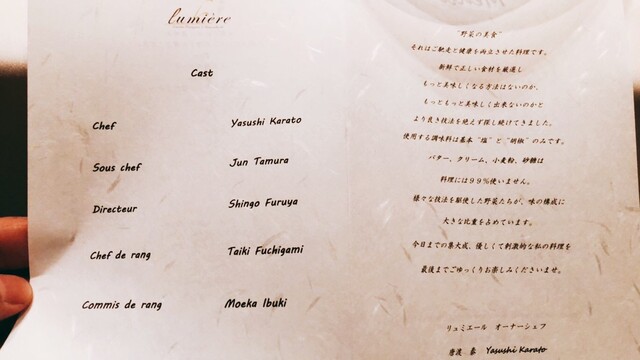 lumière
Cast
Chef Yasushi Karato
Sous chef Jun Tamura
Directeur Shingo Furuya
Chef de rang Taiki Fuchigami
Commis de rang Moeka Ibuki
"野菜の美食"
それはご馳走と健康を両立させた料理です。
新鮮で正しい食材を厳選し
もっと美味しくなる方法はないのか、
もっともっと美味しく出来ないのかと
より良き技法を絶えず探し続けてきました。
使用する調味料は基本"塩"と"胡椒"のみです。
バター、クリーム、小麦粉、砂糖は
料理には99%使いません。
様々な技法を駆使した野菜たちが、味の構成に
大きな比重を占めています。
今日までの集大成、優しくて刺激的な私の料理を
最後までごゆっくりお楽しみくださいませ。
リュミエール オーナーシェフ
唐渡 泰 Yasushi Karato